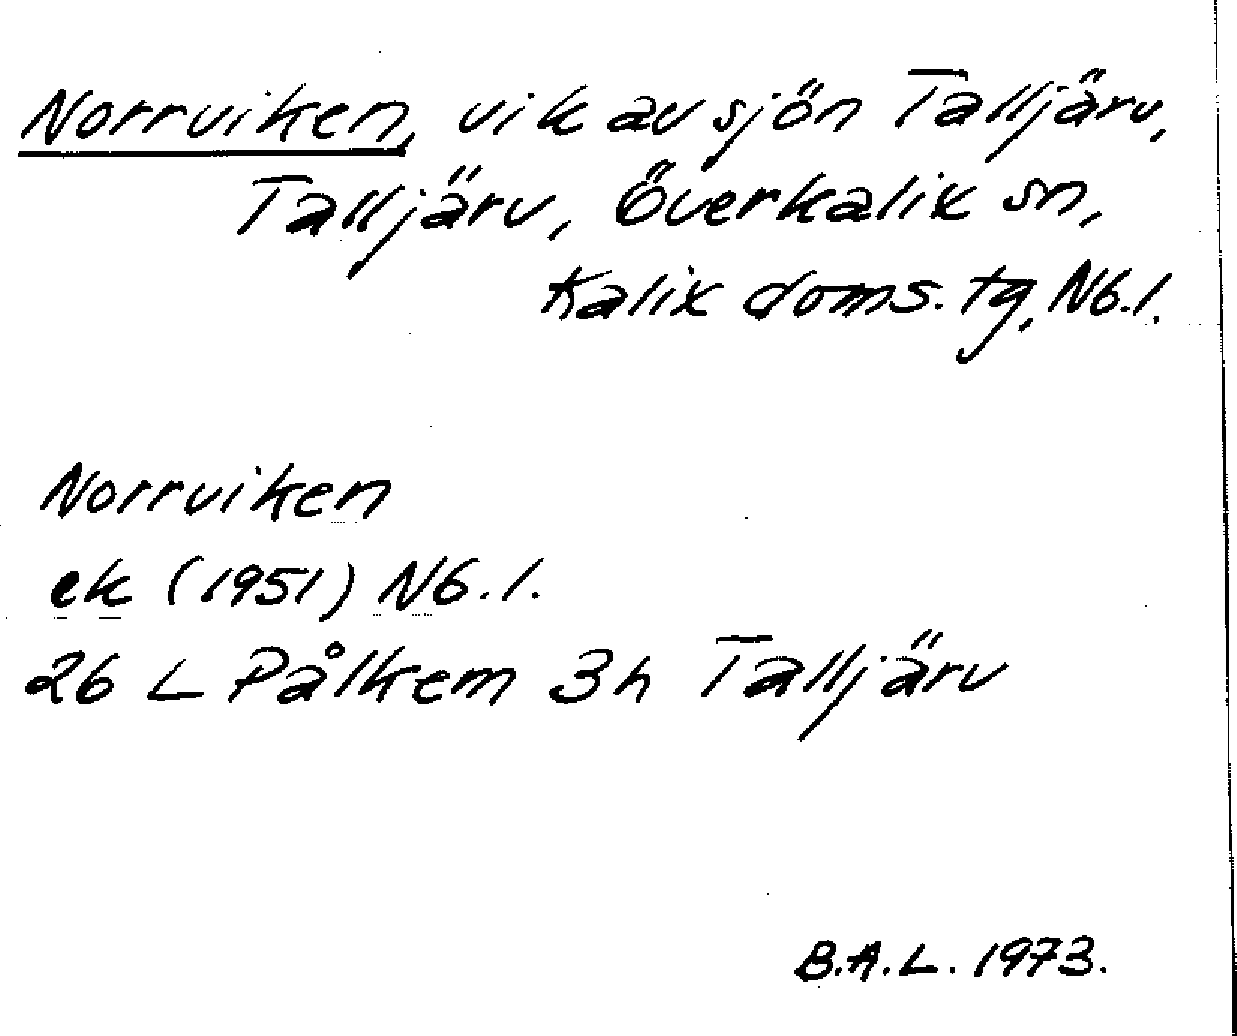 Norrviken, vik av sjön Talljärv,
Talljärv, Överkalix sn,
Kalix doms. tg, Nb.l.
Norrviken
ek (1951) Nb.l.
26 L Pålkem 3h Talljärv
B.A.L. 1973.